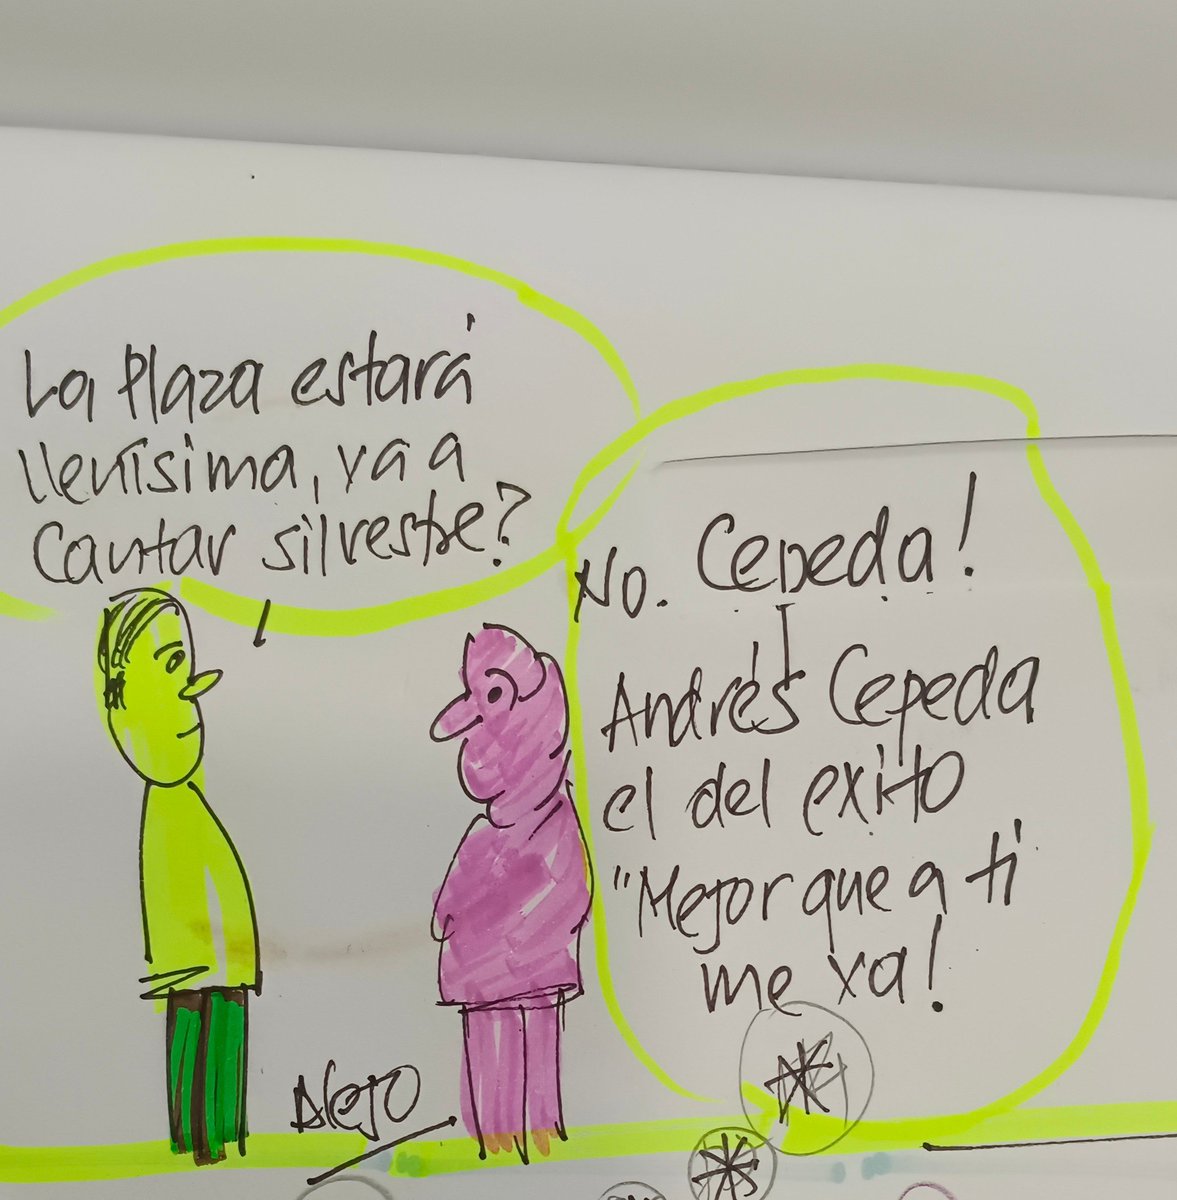 La Plaza estará
llenísima, va a
Cantar silvestre?
No. Cepeda!
Andrés Cepeda
el del exito
"Mejor que a ti
me va!
Alejo